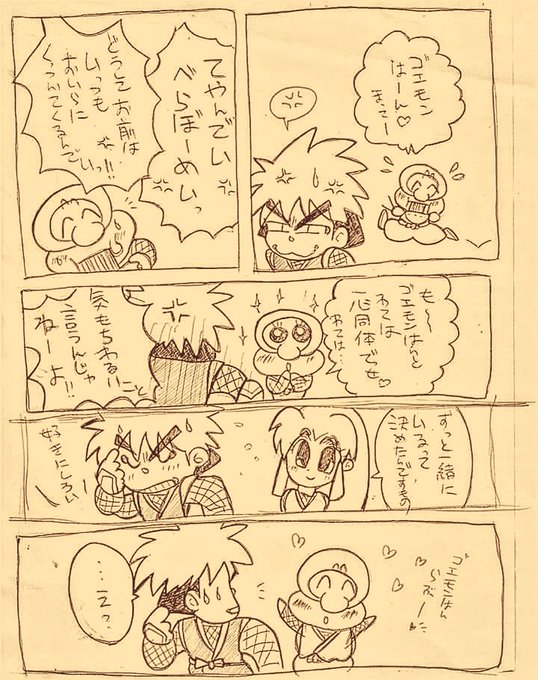 ゴエモン
はーん♡
まってー
てやんでい
べらぼーめいっ
どうしてお前は
いっつも
おいらに
くっついてくるんでいっ!!
も〜〜
ゴエモンはんと
わては
一心同体でせ♡
わては…
気もちわるいこと
言うんじゃ
ねーよ!!
ずっと一緒に
いるって
決めたんですもの
好きにしろい
ゴエモンはん
らぶー♡
…えっ